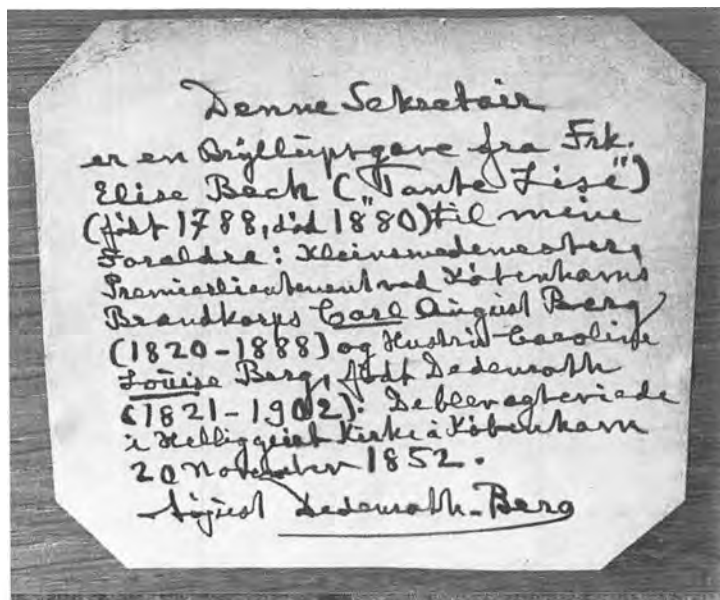 Denne Sekretair
er en Bryllupsgave fra Frk.
Elise Beck („Tante Lise")
(født 1788, død 1880) til mine
Forældre: Kleinsmedemester,
Premierlieutenant ved Københavns
Brandkorps Carl August Berg
(1820-1888) og Hustru Caroline
Louise Berg, født Dedenroth
(1821-1902). De blev agteviede
i Helliggeist Kirke i København
20 November 1852.
August Dedenroth-Berg